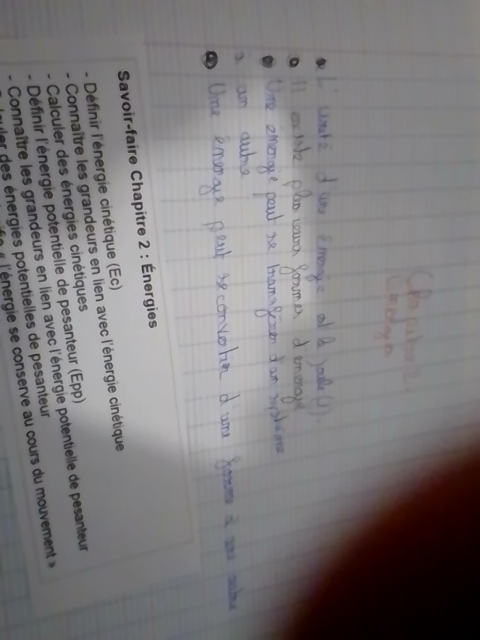 Chapitre 2
Energie
L'unité d'une énergie est le joule (J).
Il existe plusieurs formes d'énergie
Une énergie peut se transférer d'un système
à un autre
Une énergie peut se convertir d'une forme à une autre
Savoir-faire Chapitre 2 : Énergies
- Définir l'énergie cinétique (Ec)
- Connaître les grandeurs en lien avec l'énergie cinétique
- Calculer des énergies cinétiques
- Définir l'énergie potentielle de pesanteur (Epp)
- Connaître les grandeurs en lien avec l'énergie potentielle de pesanteur
- Calculer des énergies potentielles de pesanteur
« l'énergie se conserve au cours du mouvement »